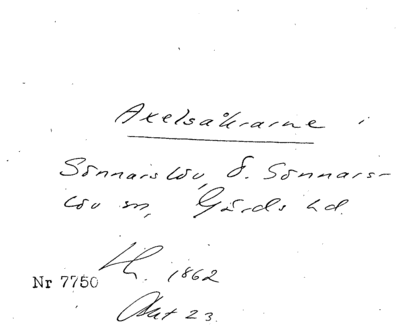 Axelsåkrarne
Sönnarslöv, Ö. Sönnars-
löv sn, Gärds hd.
Nr 7750 Lh. 1862
Akt 23.